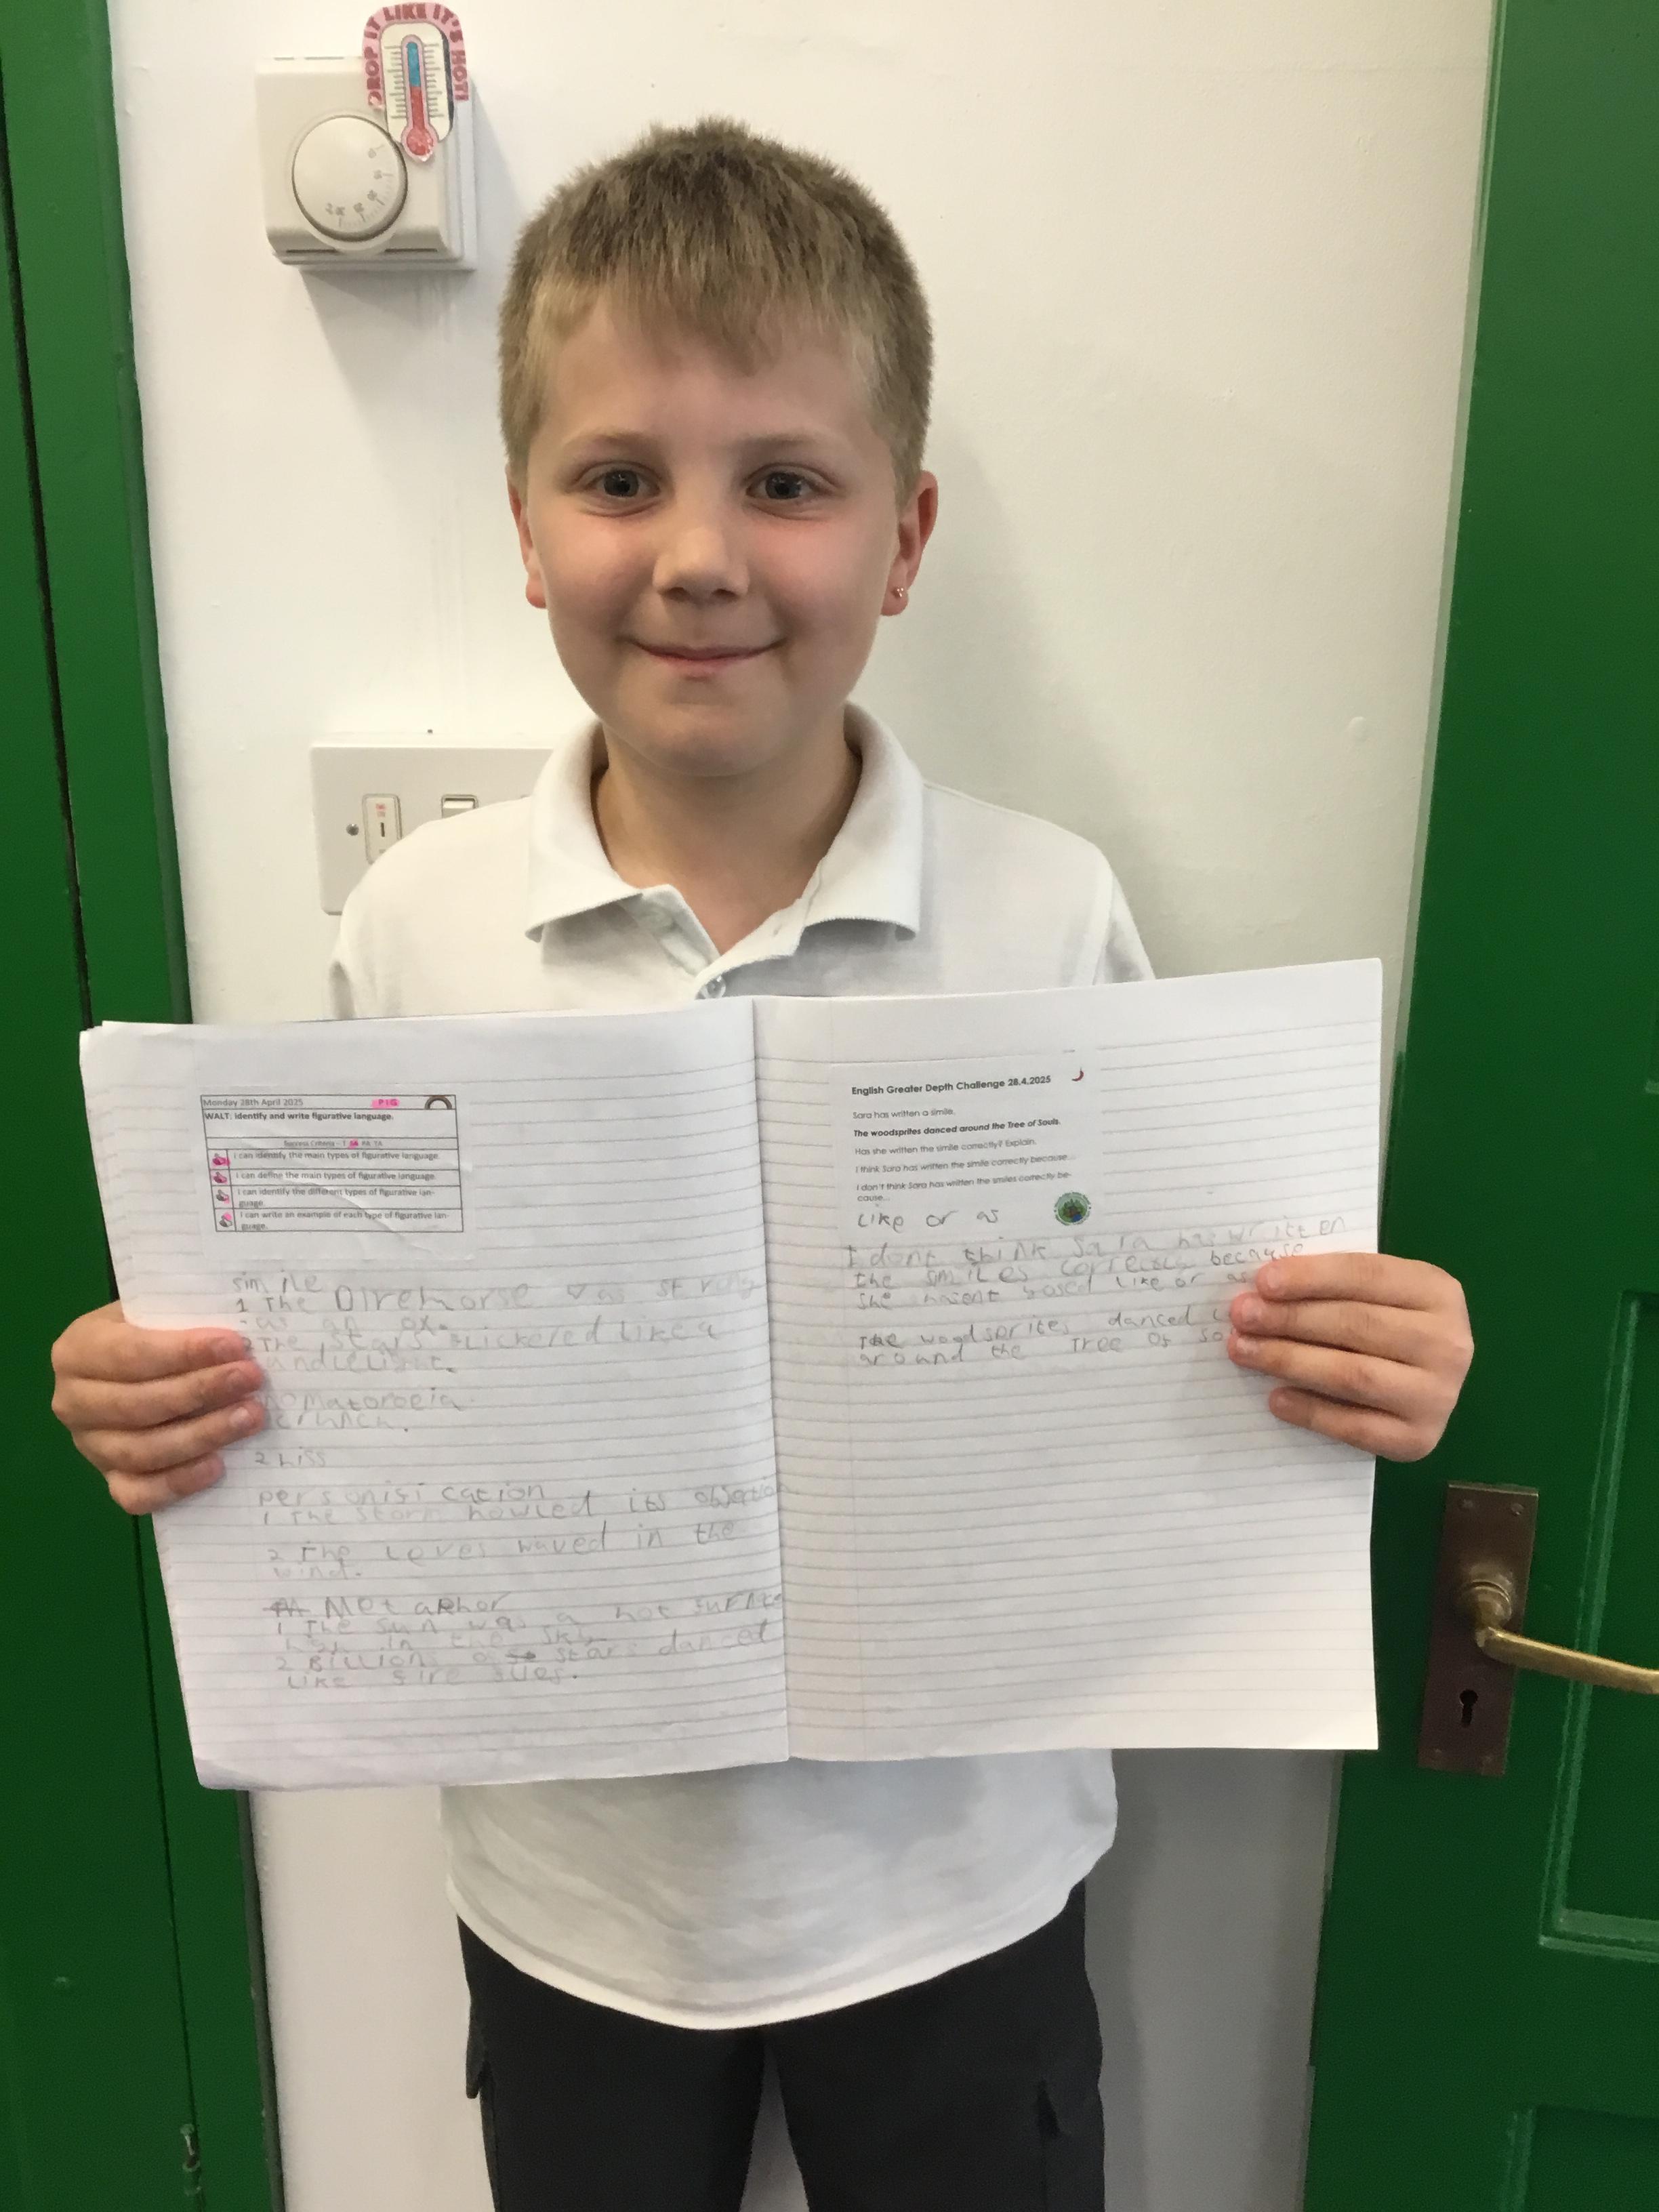 DROP IT LIKE IT'S HOT!
Monday 28th April 2025
WALT: Identify and write figurative language.
Success Criteria - T
I can identify the main types of figurative language.
I can define the main types of figurative language.
I can identify the different types of figurative lan-
guage.
I can write an example of each type of figurative lan-
guage.
simile
1 The Direhorse was strong
as an ox.
2 The stars flickered like a
2 hiss
personifi cation
1 The storm howled its
2 The leves waved in the
wind.
Metaphor
1 The sun was a hot
in the sky
2 Billions of stars danced
like fire flies.
English Greater Depth Challenge 28.4.2025
Sara has written a simile.
The woodsprites danced around the Tree of Souls.
Has she written the simile correctly? Explain.
I think Sara has written the simile correctly because...
I don't think Sara has written the smiles correctly be-
cause...
like or as
I dont think Sara has writen
the smiles because
she hasent like or as
The woodsprites danced
around the Tree of